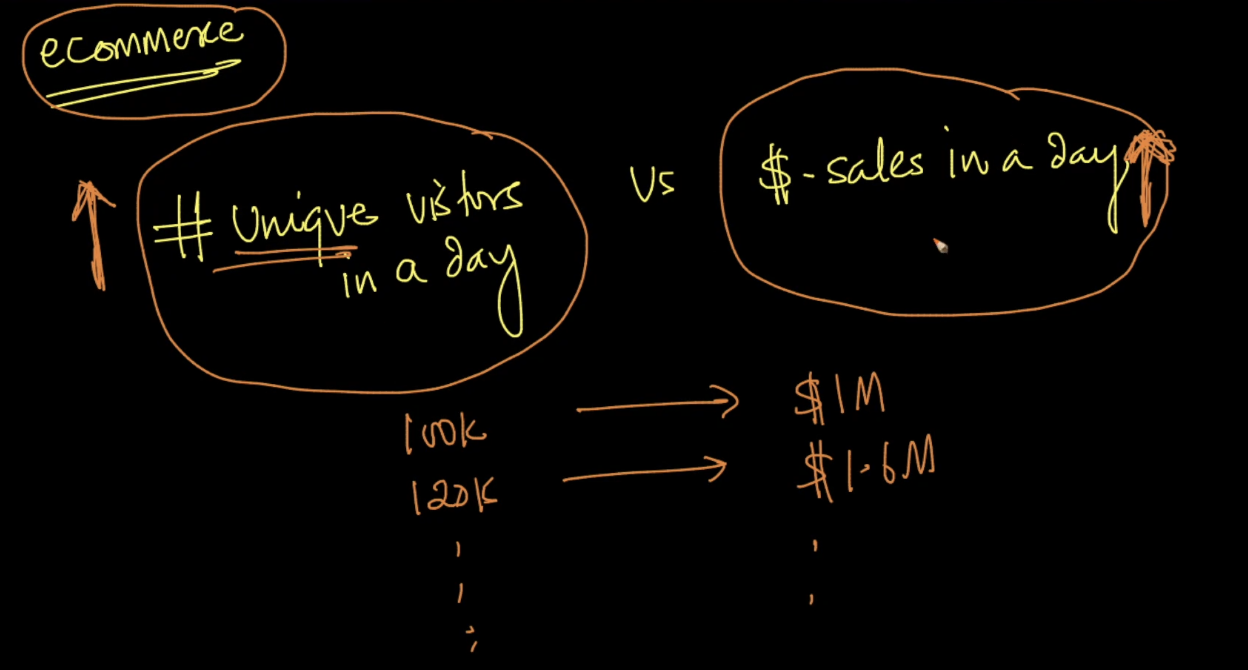 ecommerce
# unique visitors
in a day
vs
$-sales in a day
100K
$1M
120K
$1.6M